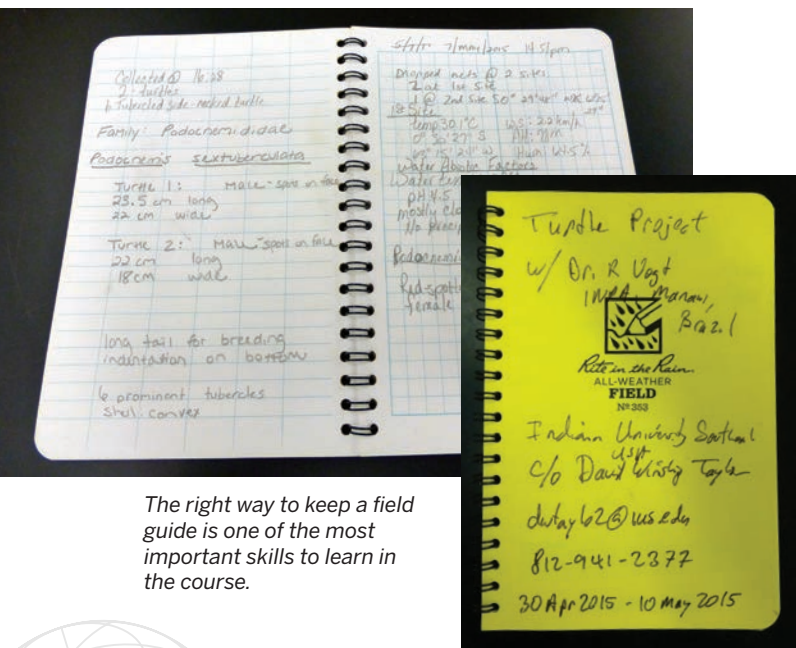 Collected @ 16:28
2 turtles
6 Tubercled side-necked turtle
Family: Podocnemididae
Podocnemis sextuberculata
Turtle 1: Male - spots on face
23.5 cm long
22 cm wide
Turtle 2: Male - spots on face
22 cm long
18 cm wide
long tail for breeding
indentation on bottom
6 prominent tubercles
shell convex
7/may/2015
Dropped nets @ 2 sites
2 at 1st site
1 @ 2nd site
1st Site
temp 30.1°C
Water Abiotic Factors
pH 4.5
Red-spott
female
Turtle Project
w/ Dr. R Vogt
INPA Manaus,
Brazil
Rite in the Rain
ALL-WEATHER
FIELD
Nº 353
Indiana University Southeast
USA
c/o David Winship Taylor
dwtay62@ius.edu
812-941-2377
30 Apr 2015 - 10 May 2015
The right way to keep a field
guide is one of the most
important skills to learn in
the course.